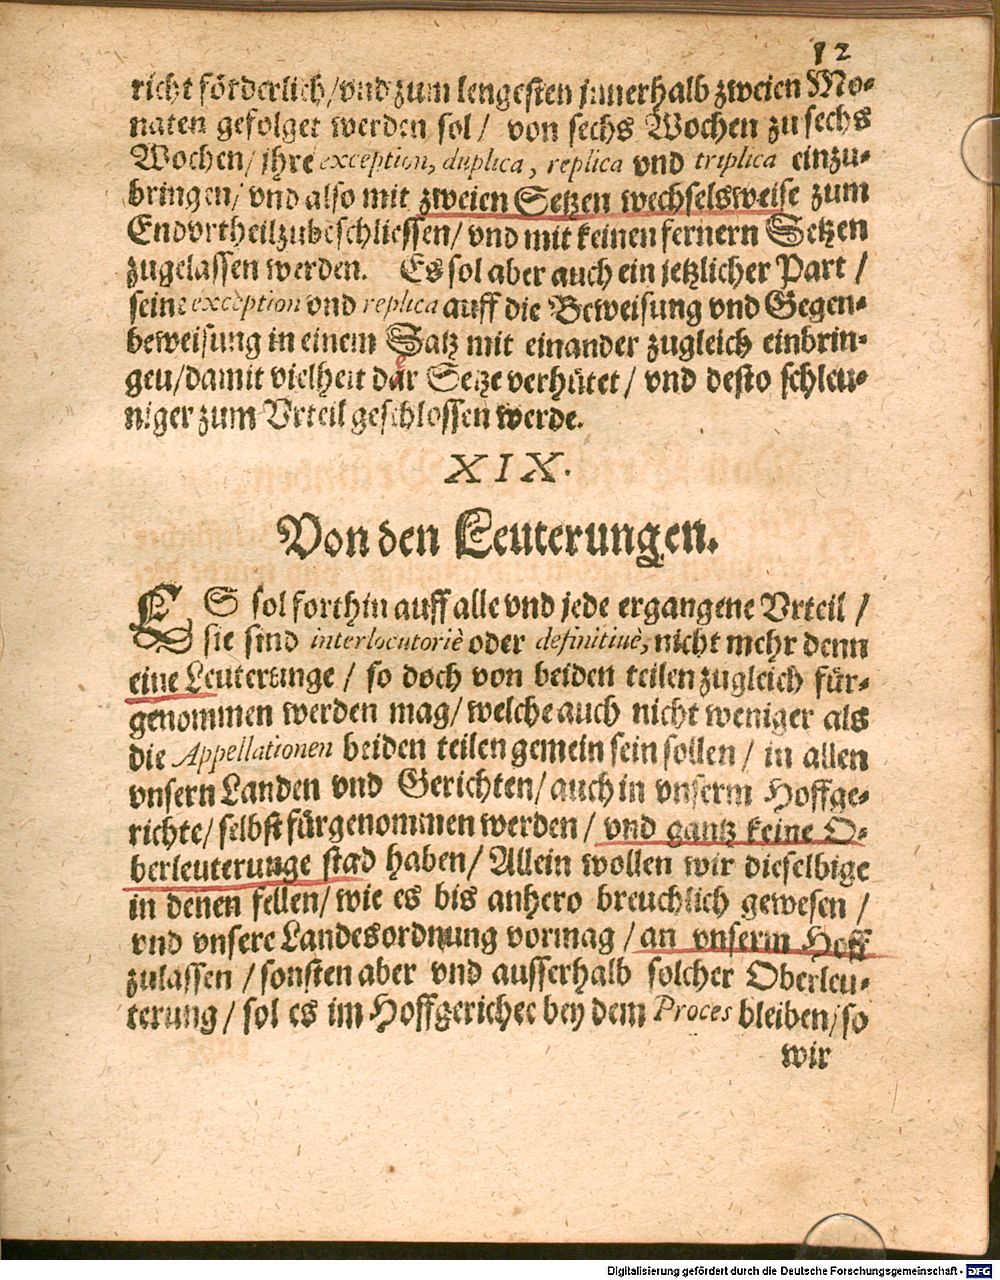 12
richt förderlich/vnd zum lengesten jnnerhalb zweien Mo-
naten gefolget werden sol/ von sechs Wochen zu sechs
Wochen/ jhre exception, duplica, replica vnd triplica einzu-
bringen/ vnd also mit zweien Setzen wechselsweise zum
Endvrtheil zubeschliessen/ vnd mit keinen fernern Setzen
zugelassen werden. Es sol aber auch ein jetzlicher Part /
seine exception vnd replica auff die Beweisung vnd Gegen-
beweisung in einem Satz mit einander zugleich einbrin-
gen/damit vielheit dar Setze verhütet/ vnd desto schleu-
niger zum Vrteil geschlossen werde.
XIX.
Von den Leuterungen.
ES sol forthin auff alle vnd jede ergangene Vrteil /
sie sind interlocutoriè oder definitiuè, nicht mehr denn
eine Leuterunge / so doch von beiden teilen zugleich für-
genommen werden mag/ welche auch nicht weniger als
die Appellationen beiden teilen gemein sein sollen / in allen
vnsern Landen vnd Gerichten/ auch in vnserm Hoffge-
richte/ selbst fürgenommen werden / vnd gantz keine O-
berleuterunge stad haben/ Allein wollen wir dieselbige
in denen fellen/ wie es bis anhero breuchlich gewesen /
vnd vnsere Landesordnung vormag / an vnserm Hoff
zulassen / sonsten aber vnd ausserhalb solcher Oberleu-
terung / sol es im Hoffgerichte bey dem Proces bleiben/ so
wir
Digitalisierung gefördert durch die Deutsche Forschungsgemeinschaft - DFG